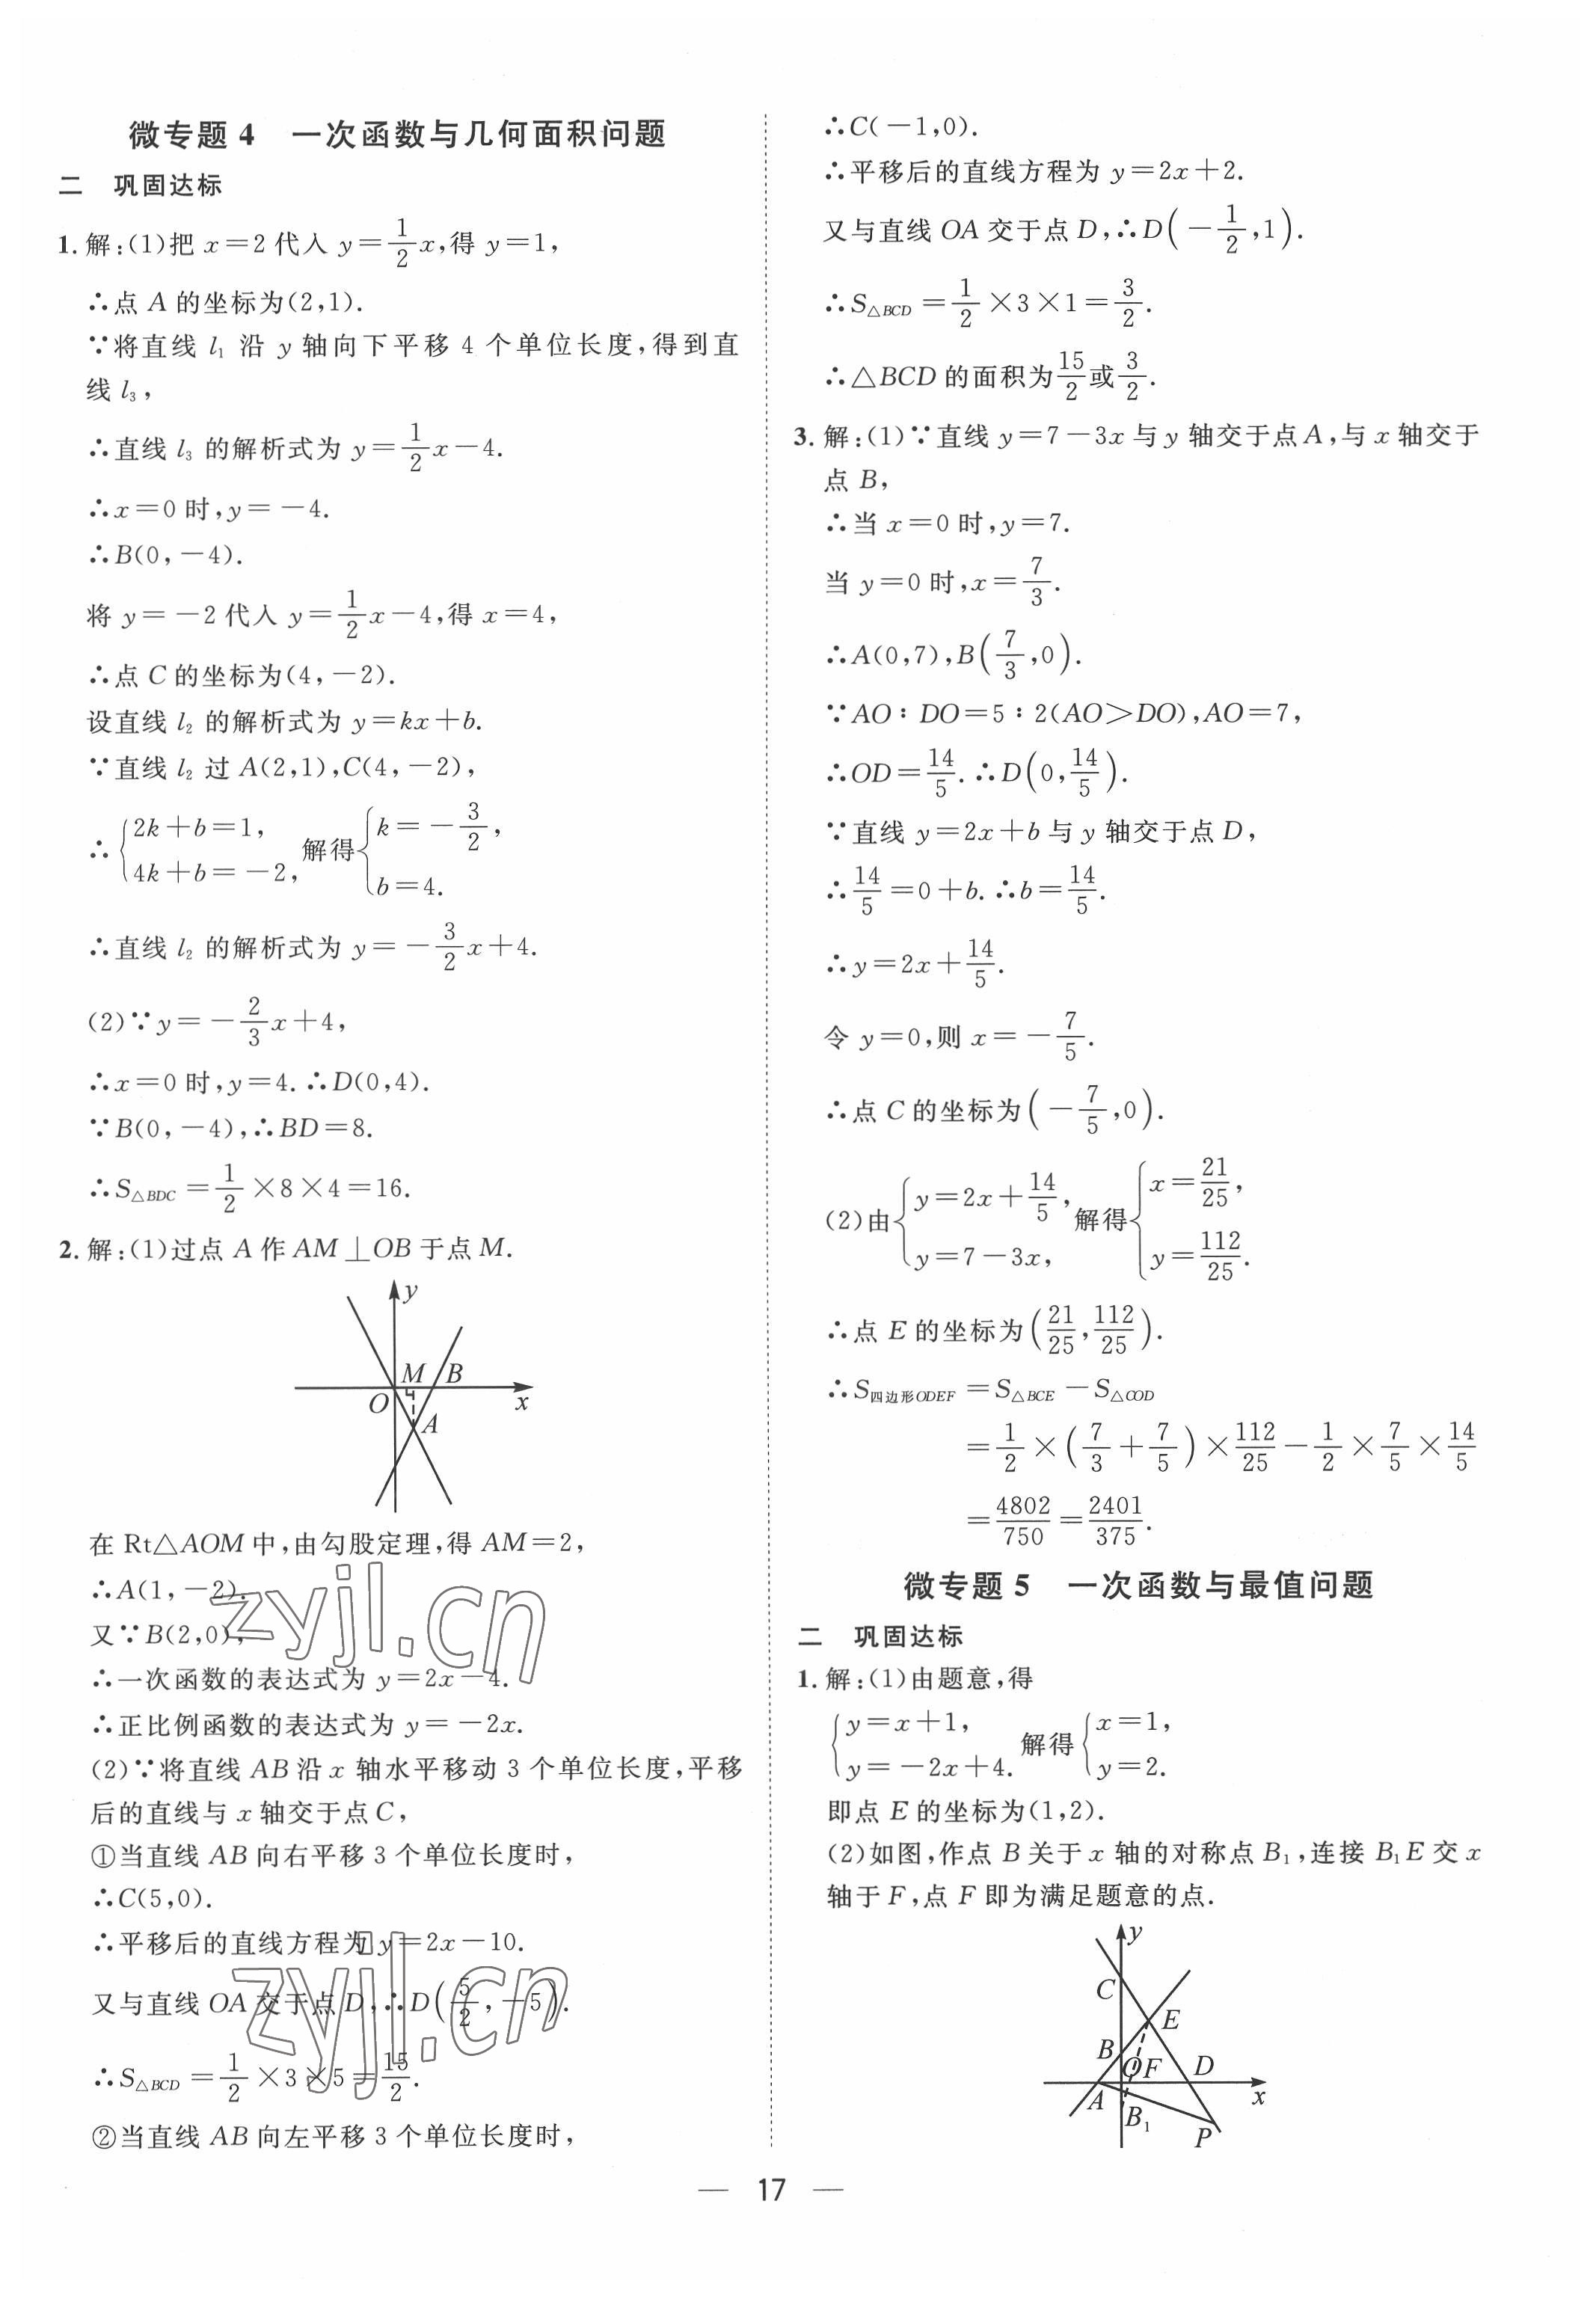 微专题4 一次函数与几何面积问题
二 巩固达标
1. 解:(1)把 x=2 代入 y=1/2x,得 y=1,
∴点 A 的坐标为(2,1).
∵将直线 l₁ 沿 y 轴向下平移 4 个单位长度,得到直
线 l₃,
∴直线 l₃ 的解析式为 y=1/2x-4.
∴x=0 时,y=-4.
∴B(0,-4).
将 y=-2 代入 y=1/2x-4,得 x=4,
∴点 C 的坐标为(4,-2).
设直线 l₂ 的解析式为 y=kx+b.
∵直线 l₂ 过 A(2,1),C(4,-2),
∴{2k+b=1, 4k+b=-2, 解得{k=-3/2, b=4.
∴直线 l₂ 的解析式为 y=-3/2x+4.
(2)∵y=-2/3x+4,
∴x=0 时,y=4. ∴D(0,4).
∵B(0,-4),∴BD=8.
∴S△BDC=1/2×8×4=16.
2. 解:(1)过点 A 作 AM⊥OB 于点 M.
y
M B
O x
A
在 Rt△AOM 中,由勾股定理,得 AM=2,
∴A(1,-2).
又∵B(2,0),
∴一次函数的表达式为 y=2x-4.
∴正比例函数的表达式为 y=-2x.
(2)∵将直线 AB 沿 x 轴水平移动 3 个单位长度,平移
后的直线与 x 轴交于点 C,
①当直线 AB 向右平移 3 个单位长度时,
∴C(5,0).
∴平移后的直线方程为 y=2x-10.
又与直线 OA 交于点 D,∴D(5/2,-5).
∴S△BCD=1/2×3×5=15/2.
②当直线 AB 向左平移 3 个单位长度时,
zyjl.cn
zyjl.cn
∴C(-1,0).
∴平移后的直线方程为 y=2x+2.
又与直线 OA 交于点 D,∴D(-1/2,1).
∴S△BCD=1/2×3×1=3/2.
∴△BCD 的面积为15/2或3/2.
3. 解:(1)∵直线 y=7-3x 与 y 轴交于点 A,与 x 轴交于
点 B,
∴当 x=0 时,y=7.
当 y=0 时,x=7/3.
∴A(0,7),B(7/3,0).
∵AO∶DO=5∶2(AO>DO),AO=7,
∴OD=14/5. ∴D(0,14/5).
∵直线 y=2x+b 与 y 轴交于点 D,
∴14/5=0+b. ∴b=14/5.
∴y=2x+14/5.
令 y=0,则 x=-7/5.
∴点 C 的坐标为(-7/5,0).
(2)由{y=2x+14/5, y=7-3x, 解得{x=21/25, y=112/25.
∴点 E 的坐标为(21/25,112/25).
∴S四边形ODEF=S△BCE-S△COD
=1/2×(7/3+7/5)×112/25-1/2×7/5×14/5
=4802/750=2401/375.
微专题5 一次函数与最值问题
二 巩固达标
1. 解:(1)由题意,得
{y=x+1, y=-2x+4. 解得{x=1, y=2.
即点 E 的坐标为(1,2).
(2)如图,作点 B 关于 x 轴的对称点 B₁,连接 B₁E 交 x
轴于 F,点 F 即为满足题意的点.
y
C
E
B
O F D
A x
B₁
P
— 17 —